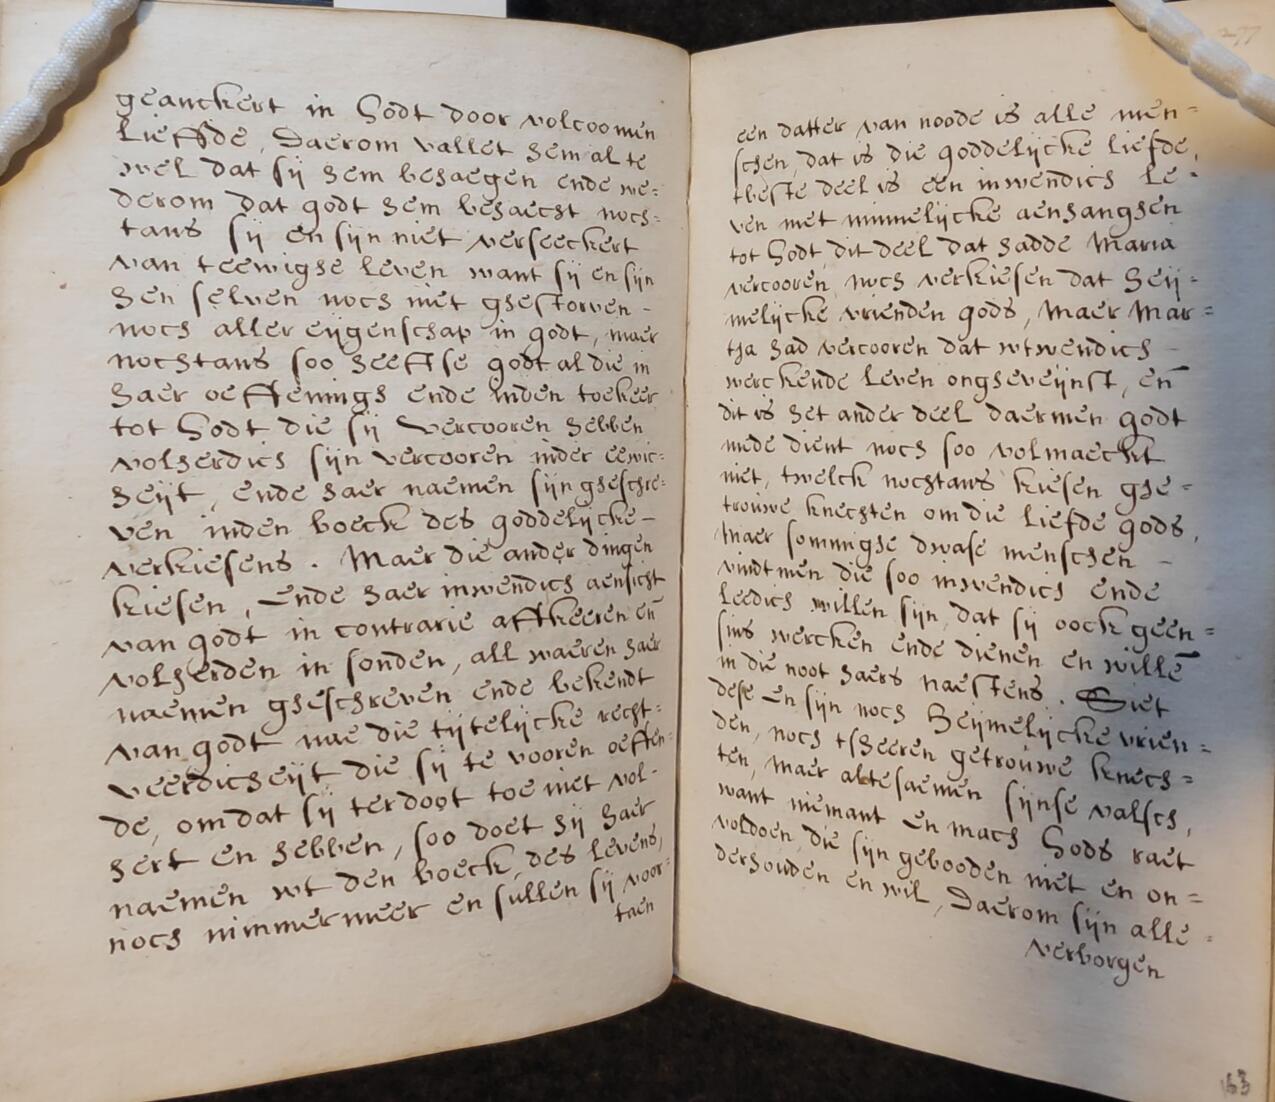 geanckert in Godt door volcoomen
Lieffde, Daerom vallet hem al te
wel dat sij hem behaegen ende we:
derom dat godt hem behaecht noch:
tans sij en sijn niet verseeckert
van teewighe leven want sij en sijn
hen selven noch niet ghestorven -
noch aller eijgenschap in godt, maer
nochtans soo heeftse godt al die in
haer oeffenings ende inden toekeer
tot Godt die sij Vercooren hebben
volherdich sijn vercooren inder eewic:
heijt, ende haer naemen sijn gheschre:
ven inden boeck des goddelijcke -
verkiesens. Maer die ander dingen
kiesen, Ende haer inwendich aensicht
van godt in contrarie affkeeren en̄
volherden in sonden, all waeren haer
naemen gheschreven ende bekendt
van godt nae die tijtelijcke recht:
veerdicheijt die sij te vooren oeffen:
de, omdat sij ter doot toe niet vol-
hert en hebben, soo doet hij haer
naemen wt den boeck des levens,
noch nimmermeer en sullen sij voor:
taen
277
een datter van noode is alle men=
schen, dat is die goddelijcke liefde,
tbeste deel is een inwendich Le-
ven met minnelijcke aenhanghen
tot Godt, dit deel dat hadde Maria
vercooren, noch verkiesen dat heij=
melijcke vrienden gods, Maer Mar=
tha had vercooren dat wtwendich -
werckende Leven ongheveijnst, en̄
dit is het ander deel daermen godt
mede dient noch soo volmaeckt
niet, twelck nochtans kiesen ghe=
trouwe knechten om die liefde gods,
Maer sommighe dwase menschen -
vindtmen die soo inwendich ende
Leedich willen sijn, dat sij oock geen=
sins wercken ende dienen en willē
in die noot haers naestens. Siet
dese en sijn noch Heijmelijcke vrien=
den, noch tsheeren getrouwe knech=
ten, maer altesaemen sijnse valsch,
want niemant en mach Gods raet
voldoen, die sijn gebooden niet en on=
derhouden en wil, Daerom sijn alle=
verborgen
163